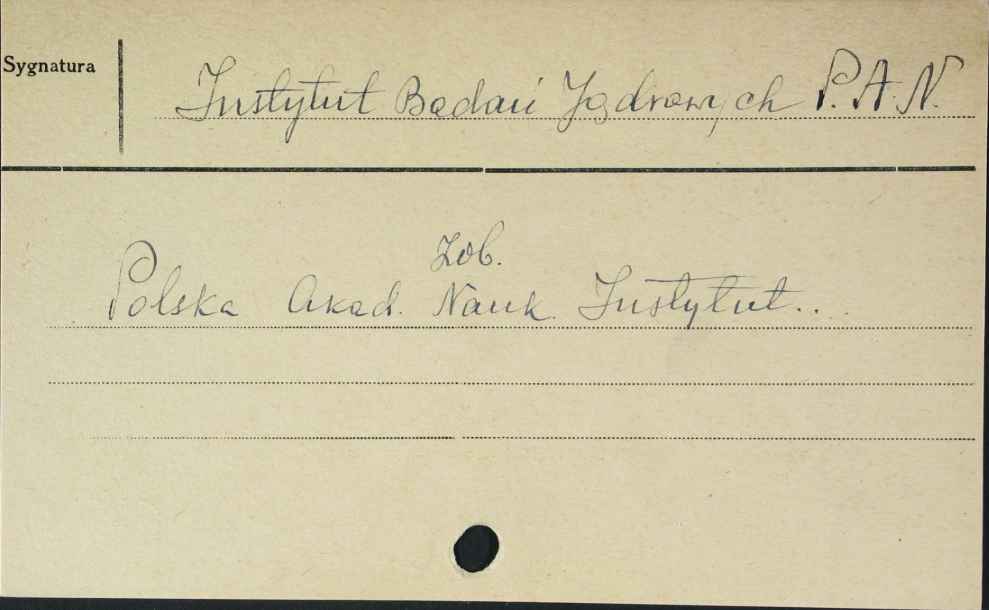 Sygnatura
Instytut Badań Jądrowych P.A.N.
Zob.
Polska Akad. Nauk. Instytut...